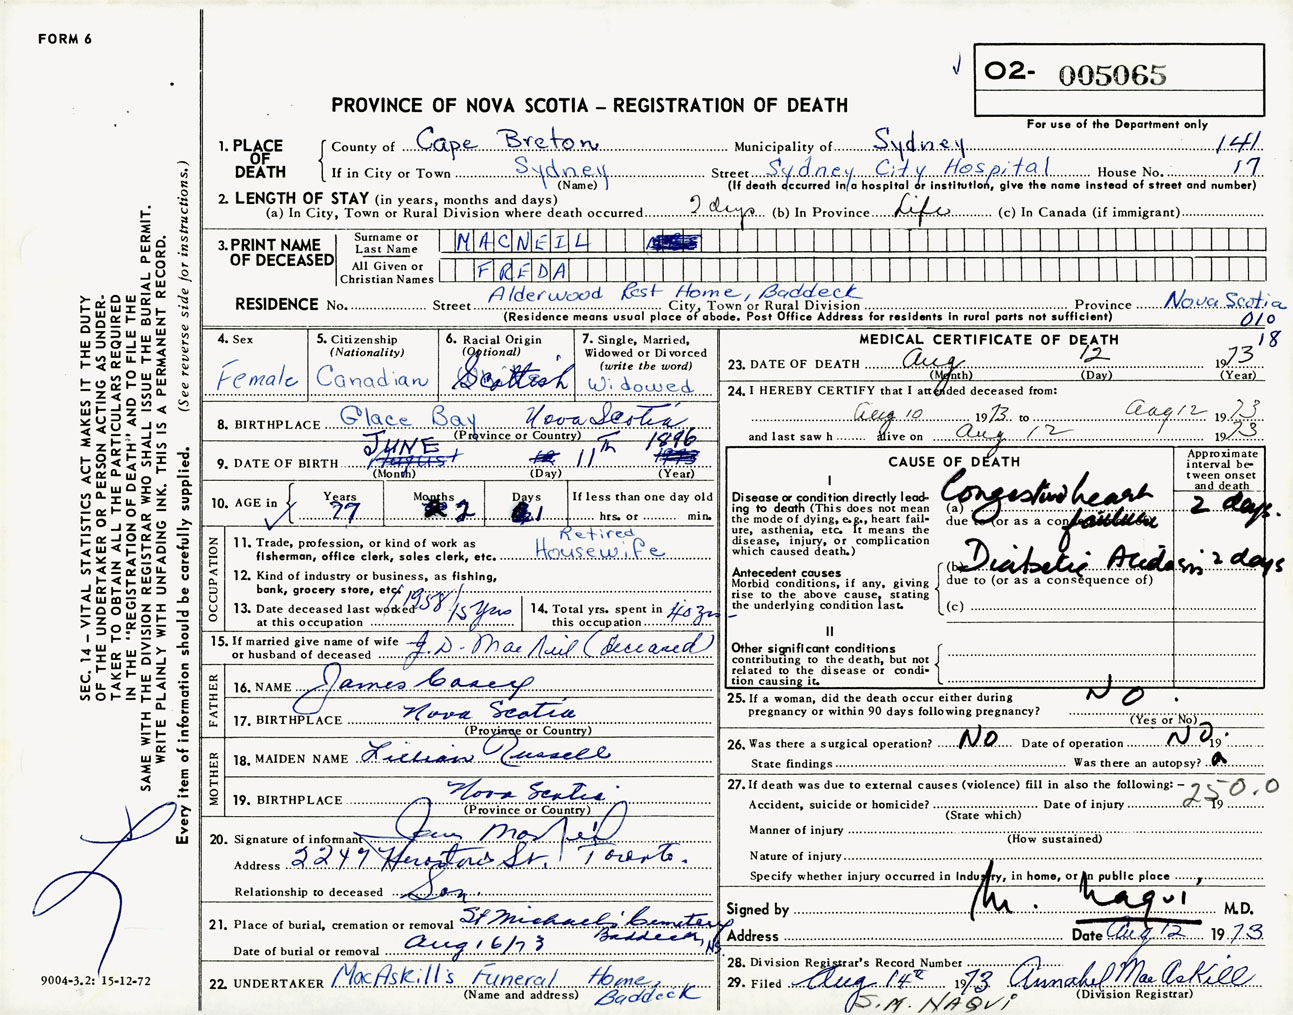 FORM 6
02- 005065
For use of the Department only
PROVINCE OF NOVA SCOTIA – REGISTRATION OF DEATH
1. PLACE OF DEATH
County of Cape Breton Municipality of Sydney 141
If in City or Town Sydney Street Sydney City Hospital House No. 17
(Name) (If death occurred in a hospital or institution, give the name instead of street and number)
2. LENGTH OF STAY (in years, months and days)
(a) In City, Town or Rural Division where death occurred 2 days (b) In Province Life (c) In Canada (if immigrant)
3. PRINT NAME OF DECEASED
Surname or Last Name MACNEIL
All Given or Christian Names FREDA
RESIDENCE No. Street Alderwood Rest Home, Baddeck City, Town or Rural Division Province Nova Scotia
(Residence means usual place of abode. Post Office Address for residents in rural parts not sufficient) 010
18
4. Sex Female
5. Citizenship (Nationality) Canadian
6. Racial Origin (Optional) Scottish
7. Single, Married, Widowed or Divorced (write the word) Widowed
8. BIRTHPLACE Glace Bay Nova Scotia
(Province or Country)
9. DATE OF BIRTH JUNE 11th 1896
(Month) (Day) (Year)
10. AGE in Years 77 Months 2 Days 1 If less than one day old
hrs. or min.
OCCUPATION
11. Trade, profession, or kind of work as fisherman, office clerk, sales clerk, etc. Retired Housewife
12. Kind of industry or business, as fishing, bank, grocery store, etc.
13. Date deceased last worked at this occupation 1958/ 15 yrs
14. Total yrs. spent in this occupation 40 yrs
15. If married give name of wife or husband of deceased J.D. MacNeil (deceased)
FATHER
16. NAME James Casey
17. BIRTHPLACE Nova Scotia
(Province or Country)
MOTHER
18. MAIDEN NAME Lillian Russell
19. BIRTHPLACE Nova Scotia
(Province or Country)
20. Signature of informant
Address 2247 St. Toronto.
Relationship to deceased Son.
21. Place of burial, cremation or removal St Michael's Cemetery Baddeck, NS.
Date of burial or removal Aug 16/73
22. UNDERTAKER MacAskill's Funeral Home, Baddeck
(Name and address)
MEDICAL CERTIFICATE OF DEATH
23. DATE OF DEATH Aug 12 1973
(Month) (Day) (Year)
24. I HEREBY CERTIFY that I attended deceased from:
Aug 10 1973 to Aug 12 1973
and last saw h alive on Aug 12 1973
CAUSE OF DEATH
Approximate interval between onset and death
I
Disease or condition directly leading to death (This does not mean the mode of dying, e.g., heart failure, asthenia, etc. It means the disease, injury, or complication which caused death.)
(a) Congestive heart failure 2 days.
due to (or as a consequence of)
Antecedent causes
Morbid conditions, if any, giving rise to the above cause, stating the underlying condition last.
(b) Diabetic Acidosis 2 days
due to (or as a consequence of)
(c)
II
Other significant conditions contributing to the death, but not related to the disease or condition causing it.
25. If a woman, did the death occur either during pregnancy or within 90 days following pregnancy? NO.
(Yes or No)
26. Was there a surgical operation? NO Date of operation NO 19
State findings Was there an autopsy?
27. If death was due to external causes (violence) fill in also the following: – 250.0
Accident, suicide or homicide? Date of injury 19
(State which)
Manner of injury
(How sustained)
Nature of injury
Specify whether injury occurred in Industry, in home, or in public place
Signed by M. Naqui M.D.
Address Date Aug 12 1973
28. Division Registrar's Record Number
29. Filed Aug 14th 1973 Annabel MacAskill
(Division Registrar)
S.M. NAQUI
SEC. 14 – VITAL STATISTICS ACT MAKES IT THE DUTY
OF THE UNDERTAKER OR PERSON ACTING AS UNDERTAKER TO OBTAIN ALL THE PARTICULARS REQUIRED
IN THE "REGISTRATION OF DEATH" AND TO FILE THE
SAME WITH THE DIVISION REGISTRAR WHO SHALL ISSUE THE BURIAL PERMIT.
WRITE PLAINLY WITH UNFADING INK. THIS IS A PERMANENT RECORD.
Every item of information should be carefully supplied. (See reverse side for instructions.)
9004-3.2: 15-12-72